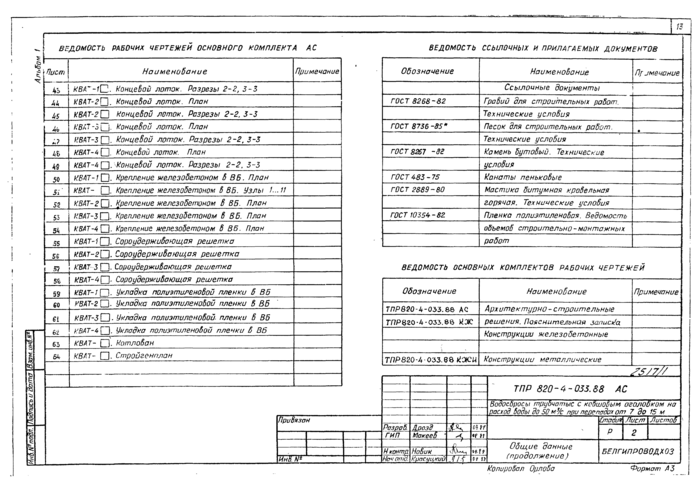 13
Альбом 1
ВЕДОМОСТЬ РАБОЧИХ ЧЕРТЕЖЕЙ ОСНОВНОГО КОМПЛЕКТА АС
Лист Наименование Примечание
43 КВАТ-1□. Концевой лоток. Разрезы 2-2, 3-3
44 КВАТ-2□. Концевой лоток. План
45 КВАТ-2□. Концевой лоток. Разрезы 2-2, 3-3
46 КВАТ-3□. Концевой лоток. План
47 КВАТ-3□. Концевой лоток. Разрезы 2-2, 3-3
48 КВАТ-4□. Концевой лоток. План
49 КВАТ-4□. Концевой лоток. Разрезы 2-2, 3-3
50 КВАТ-1□. Крепление железобетоном в ВБ. План
51 КВАТ-□. Крепление железобетоном в ВБ. Узлы 1...11
52 КВАТ-2□. Крепление железобетоном в ВБ. План
53 КВАТ-3□. Крепление железобетоном в ВБ. План
54 КВАТ-4□. Крепление железобетоном в ВБ. План
55 КВАТ-1□. Сороудерживающая решетка
56 КВАТ-2□. Сороудерживающая решетка
57 КВАТ-3□. Сороудерживающая решетка
58 КВАТ-4□. Сороудерживающая решетка
59 КВАТ-1□. Укладка полиэтиленовой пленки в ВБ
60 КВАТ-2□. Укладка полиэтиленовой пленки в ВБ
61 КВАТ-3□. Укладка полиэтиленовой пленки в ВБ
62 КВАТ-4□. Укладка полиэтиленовой пленки в ВБ
63 КВАТ-□. Котлован
64 КВАТ-□. Стройгенплан
ВЕДОМОСТЬ ССЫЛОЧНЫХ И ПРИЛАГАЕМЫХ ДОКУМЕНТОВ
Обозначение Наименование Примечание
Ссылочные документы
ГОСТ 8268-82 Гравий для строительных работ.
Технические условия
ГОСТ 8736-85* Песок для строительных работ.
Технические условия
ГОСТ 8267-82 Камень бутовый. Технические
условия
ГОСТ 483-75 Канаты пеньковые
ГОСТ 2889-80 Мастика битумная кровельная
горячая. Технические условия
ГОСТ 10354-82 Пленка полиэтиленовая. Ведомость
объемов строительно-монтажных
работ
ВЕДОМОСТЬ ОСНОВНЫХ КОМПЛЕКТОВ РАБОЧИХ ЧЕРТЕЖЕЙ
Обозначение Наименование Примечание
ТПР820-4-033.88 АС Архитектурно-строительные
ТПР820-4-033.88 КЖ решения. Пояснительная записка
Конструкции железобетонные
ТПР820-4-033.88 КЖИ Конструкции металлические
2517/1
ТПР 820-4-033.88 АС
Водосбросы трубчатые с ковшовым оголовком на
расход воды до 50 м³/с при перепадах от 7 до 15 м
Стадия Лист Листов
Р 2
Общие данные
(продолжение)
БЕЛГИПРОВОДХОЗ
Привязан
Инв №
Разраб. Дрозд
ГИП Макеев
Н контр. Новик
Нач отд. Красуцкий
Инв № подл. Подпись и дата Взам. инв №
Копировал Орлова Формат А3